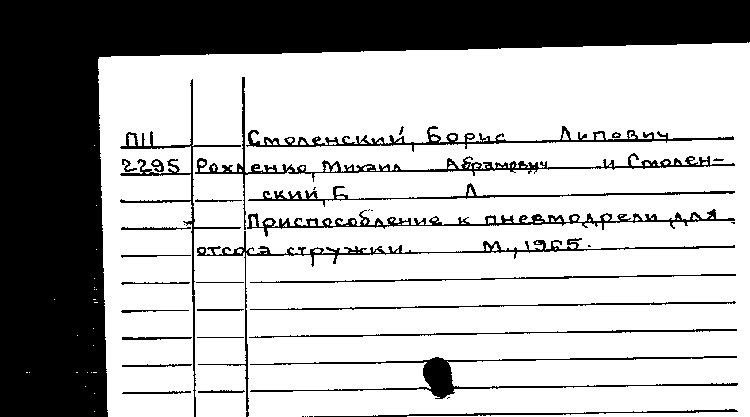 П11 Смоленский, Борис Липович
2295 Рохленко, Михаил Абрамович и Смолен-
ский, Б Л
Приспособление к пневмодрели для
отсоса стружки. М., 1965.